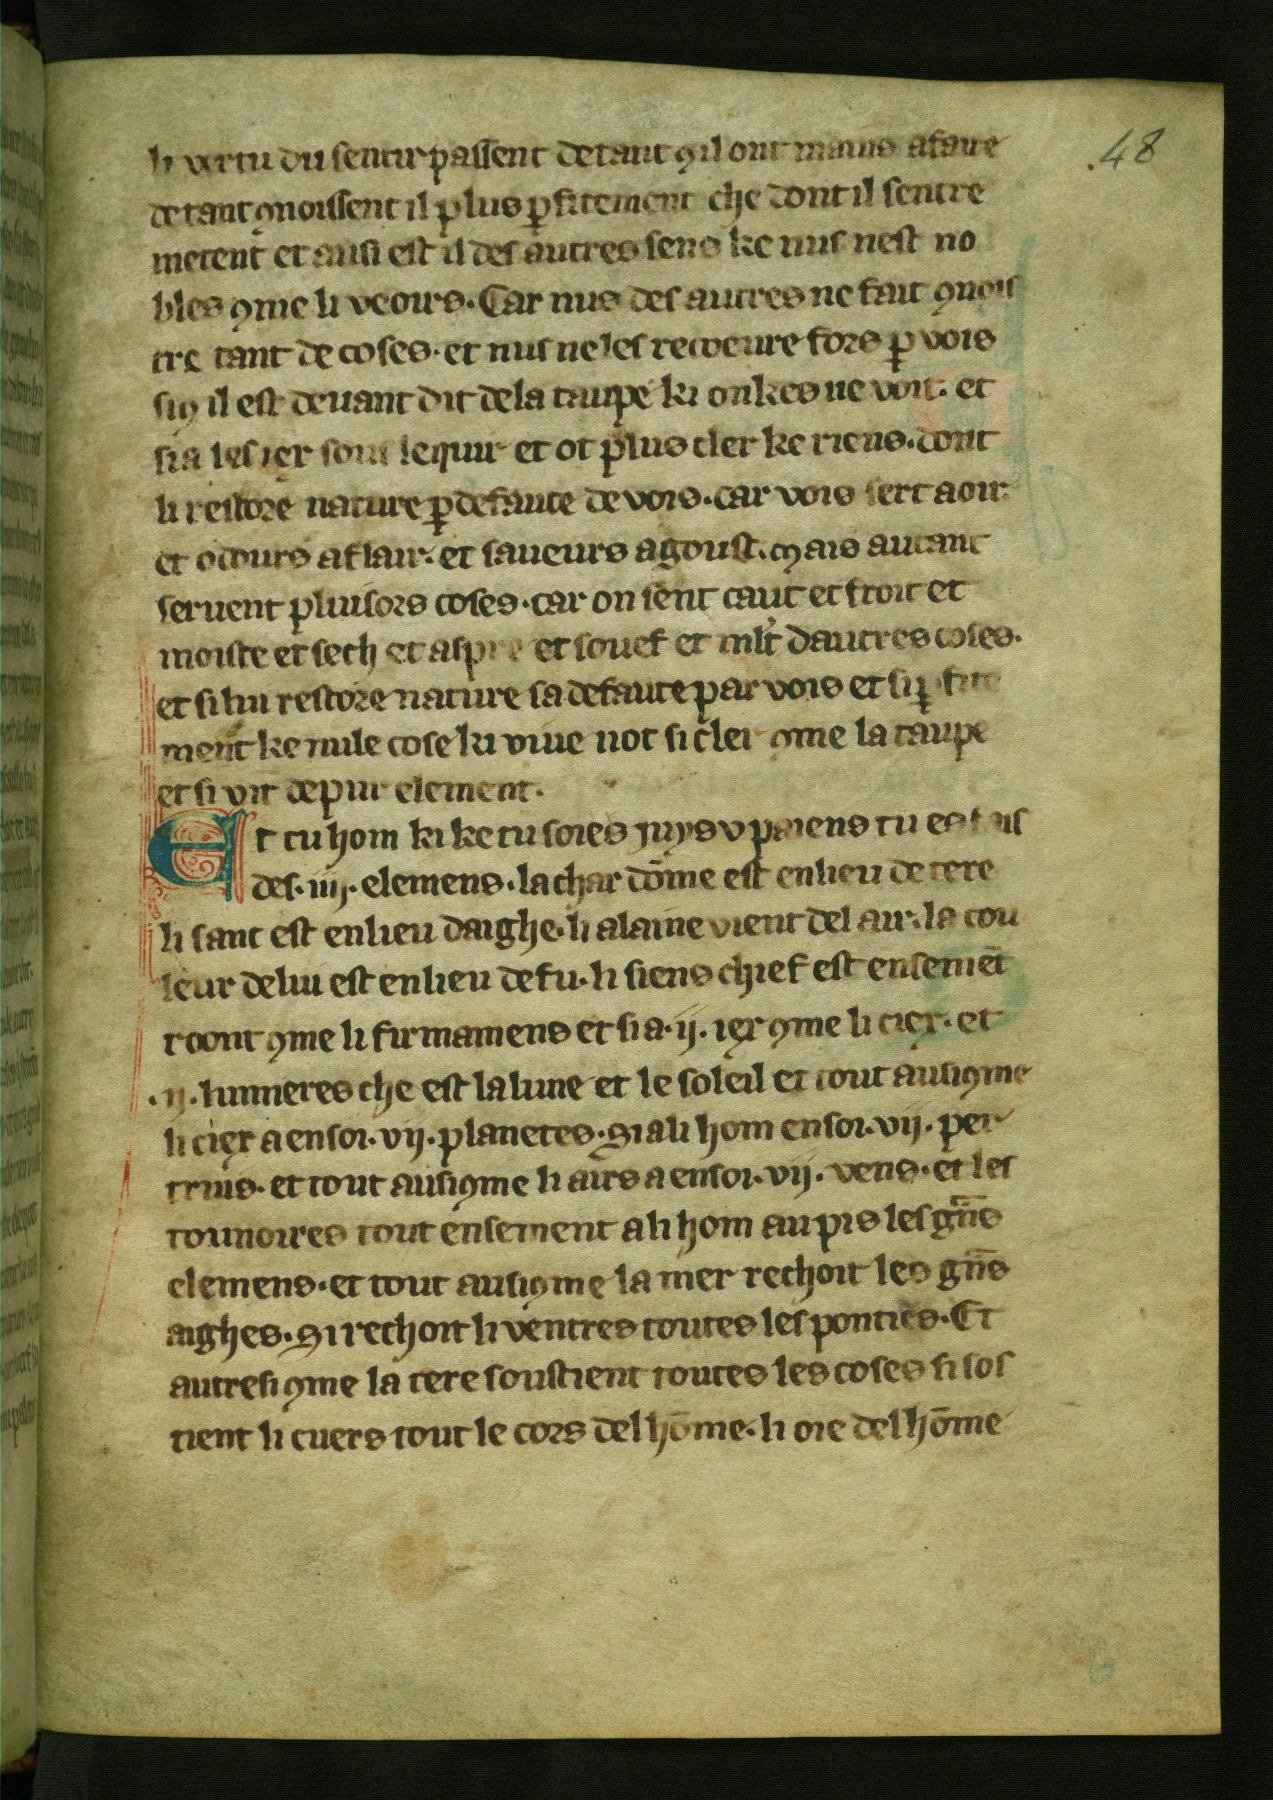 48
li vertu du sentir passent de tant ꝯ il ont mains afaire
de tant ꝯnoissent il plus ꝑfitement che dont il sentre
metent et ausi est il des autres sens ke nus nest no
bles ꝯme li veoirs. Car nus des autres ne fait ꝯnois
tre tant de coses. et nus ne les recoeure fors ꝑ vois
siꝯ il est deuant dit dela taupe ki onkes ne voit. et
si a les iex sous le quir et ot plus cler ke riens. dont
li restore nature ꝑ defaute de vois. car vois sert a oir.
et odours a flair. et saueurs a goust. mais au tant
seruent pluisors coses. car on sent caut et froit et
moiste et sech et aspre et souef et ml't dautres coses.
et si lui restore nature sa defaute par vois et si ꝑfite
ment ke nule cose ki viue not si cler ꝯme la taupe
et si vit de pur element.
Et tu hom ki ke tu soies juys v paiens tu es fais
des .iiij. elemens. la char dōme est en lieu de tere
li sanc est en lieu daighe. li alaine vient del air. la cou
leur de lui est en lieu de fu. li siens chief est ensemēt
roont ꝯme li firmamens et si a .ij. iex ꝯme li ciex. et
.ij. lumieres che est la lune et le soleil et tout ausi ꝯme
li ciex a en soi .vij. planetes. Si a li hom en soi .vij. per
truis. et tout ausi ꝯme li airs a en soi .vij. vens. et les
tounoires tout ensement a li hom au pis les gn̄s
elemens. et tout ausi ꝯme la mer rechoit les gn̄s
aighes. Si rechoit li ventres toutes les ponties. Et
autresi ꝯme la tere soustient toutes les coses si sos
tient li cuers tout le cors del hōme. li oie del hōme